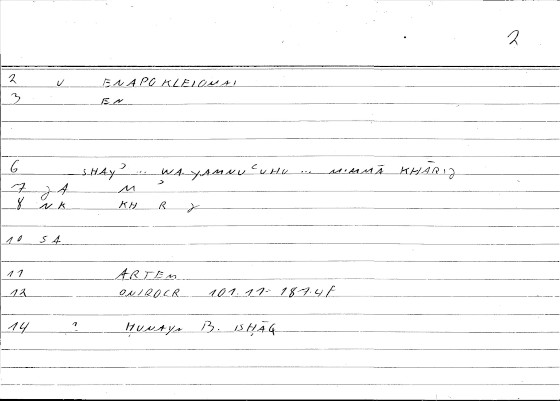 2
2 U ENAPOKLEIOMAI
3 EN
6 SHAYʾ ... WA-YAMNUʿUHU ... MIMMĀ KHĀRIJ
7 JA M ʾ
8 NK KH R J
10 SA
11 ARTEM
12 ONIROCR 101.11-181.4F
14 ? ḤUNAYN B. ISḤĀQ